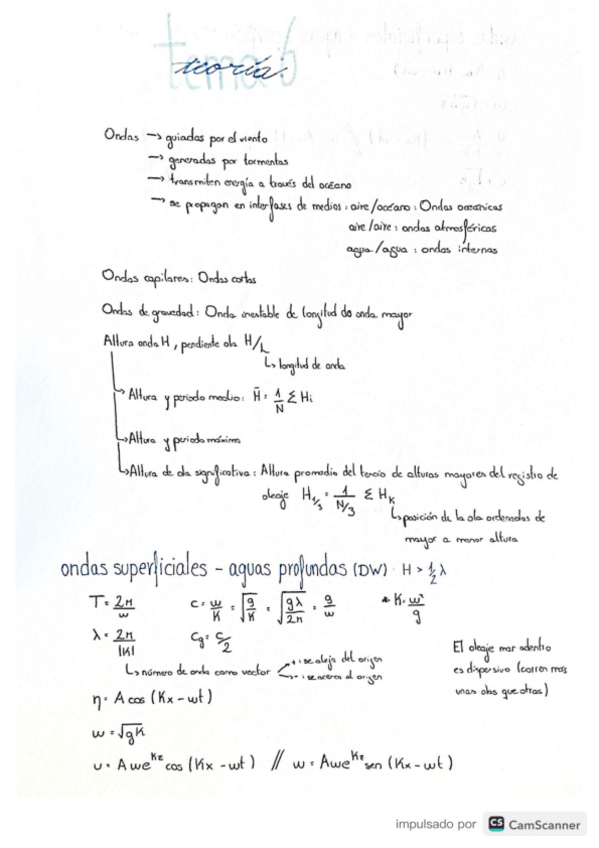 tema 6
teoría
Ondas → guiadas por el viento
→ generadas por tormentas
→ transmiten energía a través del océano
→ se propagan en interfases de medios: aire/océano: Ondas oceánicas
aire/aire: ondas atmosféricas
agua/agua: ondas internas
Ondas capilares: Ondas cortas
Ondas de gravedad: Onda inestable de longitud de onda mayor
Altura onda H, pendiente ola H/L
↳ longitud de onda
↳ Altura y período medio: H̄ = 1/N Σ Hi
↳ Altura y período máximo
↳ Altura de ola significativa: Altura promedio del tercio de alturas mayores del registro de
oleaje H1/3 = 1/(N/3) Σ HK
↳ posición de la ola ordenadas de
mayor a menor altura
ondas superficiales - aguas profundas (DW) H > 1/2 λ
T = 2π/w c = w/K = √(g/K) = √(gλ/2π) = g/w * K = w²/g
λ = 2π/|K| Cg = C/2
↳ número de onda como vector + : se aleja del origen
- : se acerca al origen
El oleaje mar adentro
es dispersivo (corren más
unas olas que otras)
η = A cos (Kx - wt)
w = √gK
u = A w e^Kz cos (Kx - wt) // w = A w e^Kz sen (Kx - wt)
impulsado por CS CamScanner